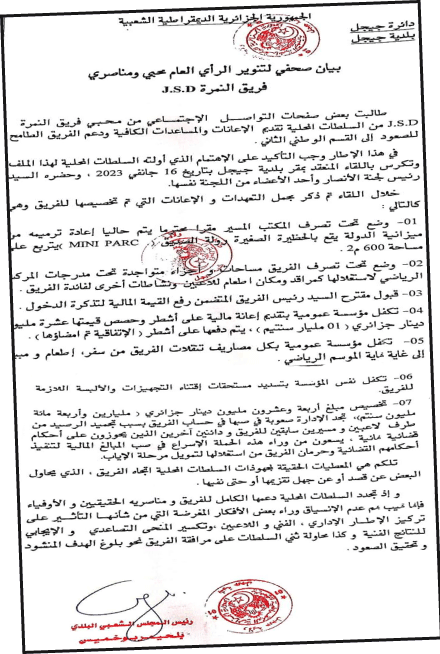 الجمهورية الجزائرية الديمقراطية الشعبية
دائرة جيجل
بلدية جيجل
بيان صحفي لتنوير الرأي العام محبي ومناصري
فريق النمرة J.S.D
طالبت بعض صفحات التواصل الإجتماعي من محبي فريق النمرة
J.S.D من السلطات المحلية تقديم الإعانات والمساعدات الكافية ودعم الفريق الطامح
للصعود إلى القسم الوطني الثاني .
في هذا الإطار وجب التأكيد على الإهتمام الذي أولته السلطات المحلية لهذا الملف
وتكرس باللقاء المنعقد بمقر بلدية جيجل بتاريخ 16 جانفي 2023 ، وحضره السيد
رئيس لجنة الأنصار وأحد الأعضاء من اللجنة نفسها.
خلال اللقاء تم ذكر مجمل التعهدات و الإعانات التي تم تخصيصها للفريق وهي
كالتالي :
01- وضع تحت تصرف المكتب المسير مقرا محترما يتم حاليا إعادة ترميمه من
ميزانية الدولة يقع بالحظيرة الصغيرة رولة الصديق ( MINI PARC ) يتربع على
مساحة 600 م2 .
02- وضع تحت تصرف الفريق مساحات و أجزاء متواجدة تحت مدرجات المركب
الرياضي لاستغلالها كمراقد ومكان إطعام للاعبين ونشاطات أخرى لفائدة الفريق .
03- قبول مقترح السيد رئيس الفريق المتضمن رفع القيمة المالية لتذكرة الدخول .
04- تكفل مؤسسة عمومية بتقديم إعانة مالية على أشطر وحصص قيمتها عشرة مليون
دينار جزائري ( 01 مليار سنتيم) ، يتم دفعها على أشطر (الإتفاقية تم امضاؤها) .
05- تكفل مؤسسة عمومية بكل مصاريف تنقلات الفريق من سفر، إطعام و مبيت
إلى غاية نهاية الموسم الرياضي .
06- تكفل نفس المؤسسة بتسديد مستحقات إقتناء التجهيزات والألبسة اللازمة
للفريق.
07- تخصيص مبلغ أربعة وعشرون مليون دينار جزائري ( مليارين وأربعة مائة
مليون سنتيم)، تجد الإدارة صعوبة في صبها في حساب الفريق بسبب تجميد الرصيد من
طرف لاعبين و مسيرين سابقين للفريق و دائنين آخرين الذين يحوزون على أحكام
قضائية نهائية ، يسعون من وراء هذه الحملة الإسراع في صب المبالغ المالية لتنفيذ
أحكامهم القضائية وحرمان الفريق من استغلالها لتمويل مرحلة الإياب.
تلكم هي المعطيات الحقيقة لمجهودات السلطات المحلية اتجاه الفريق ، الذي يحاول
البعض عن قصد أو عن جهل تقزيمها أو حتى نفيها.
و إذ تجدد السلطات المحلية دعمها الكامل للفريق و مناصريه الحقيقيين و الأوفياء
فإنما تهيب بهم عدم الإنسياق وراء بعض الأفكار المغرضة التي من شأنها التأثير على
تركيز الإطار الإداري ، الفني و اللاعبين ،وتكسير المنحى التصاعدي و الإيجابي
للنتائج الفنية و كذا محاولة ثني السلطات على مرافقة الفريق نحو بلوغ الهدف المنشود
و تحقيق الصعود .
رئيس المجلس الشعبي البلدي